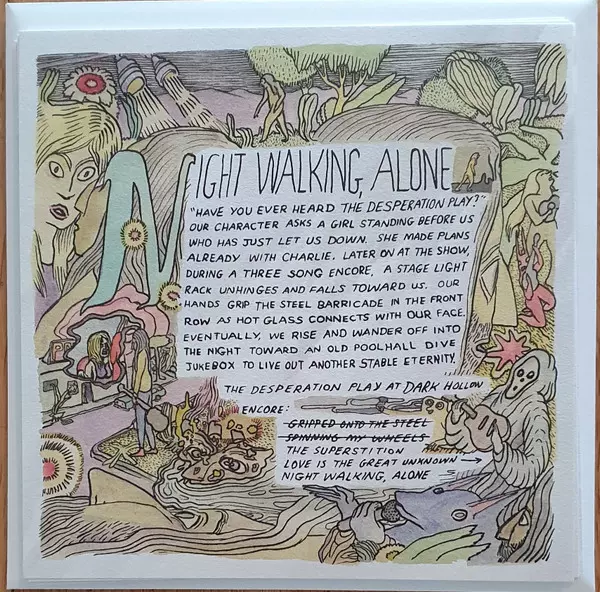 NIGHT WALKING, ALONE
"HAVE YOU EVER HEARD THE DESPERATION PLAY?"
OUR CHARACTER ASKS A GIRL STANDING BEFORE US
WHO HAS JUST LET US DOWN. SHE MADE PLANS
ALREADY WITH CHARLIE. LATER ON AT THE SHOW,
DURING A THREE SONG ENCORE, A STAGE LIGHT
RACK UNHINGES AND FALLS TOWARD US. OUR
HANDS GRIP THE STEEL BARRICADE IN THE FRONT
ROW AS HOT GLASS CONNECTS WITH OUR FACE.
EVENTUALLY, WE RISE AND WANDER OFF INTO
THE NIGHT TOWARD AN OLD POOLHALL DIVE
JUKEBOX TO LIVE OUT ANOTHER STABLE ETERNITY.
THE DESPERATION PLAY AT DARK HOLLOW
ENCORE:
GRIPPED ONTO THE STEEL
SPINNING MY WHEELS
THE SUPERSTITION
LOVE IS THE GREAT UNKNOWN →
NIGHT WALKING, ALONE